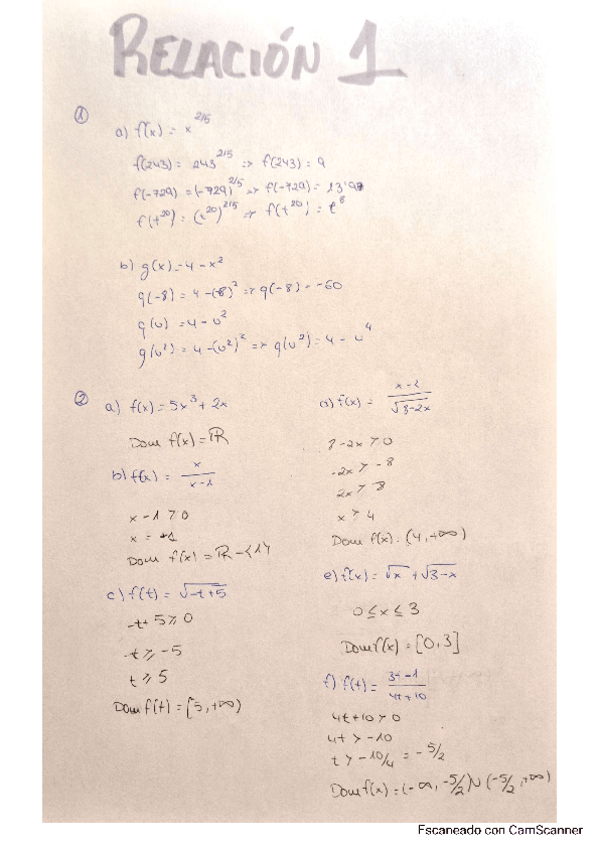 RELACIÓN 1
①
a) f(x) = x^2/5
f(243) = 243^2/5 => f(243) = 9
f(-729) = (-729)^2/5 => f(-729) = 13'97
f(t^20) = (t^20)^2/5 => f(t^20) = t^8
b) g(x) = 4 - x^2
g(-8) = 4 - (-8)^2 => g(-8) = -60
g(u) = 4 - u^2
g(u^2) = 4 - (u^2)^2 => g(u^2) = 4 - u^4
②
a) f(x) = 5x^3 + 2x
Dom f(x) = ℝ
b) f(x) = x / x-1
x - 1 ≠ 0
x = +1
Dom f(x) = ℝ - {1}
c) f(t) = √-t+5
-t + 5 ≥ 0
-t ≥ -5
t ≥ 5
Dom f(t) = [5, +∞)
f(x) = x-2 / √8-2x
8 - 2x > 0
-2x > -8
2x > 8
x > 4
Dom f(x) = (4, +∞)
e) f(x) = √x + √3-x
0 ≤ x ≤ 3
Dom f(x) = [0, 3]
f) f(t) = 3t-1 / 4t+10
4t + 10 > 0
4t > -10
t > -10/4 = -5/2
Dom f(x) = (-∞, -5/2) ∪ (-5/2, +∞)
Escaneado con CamScanner